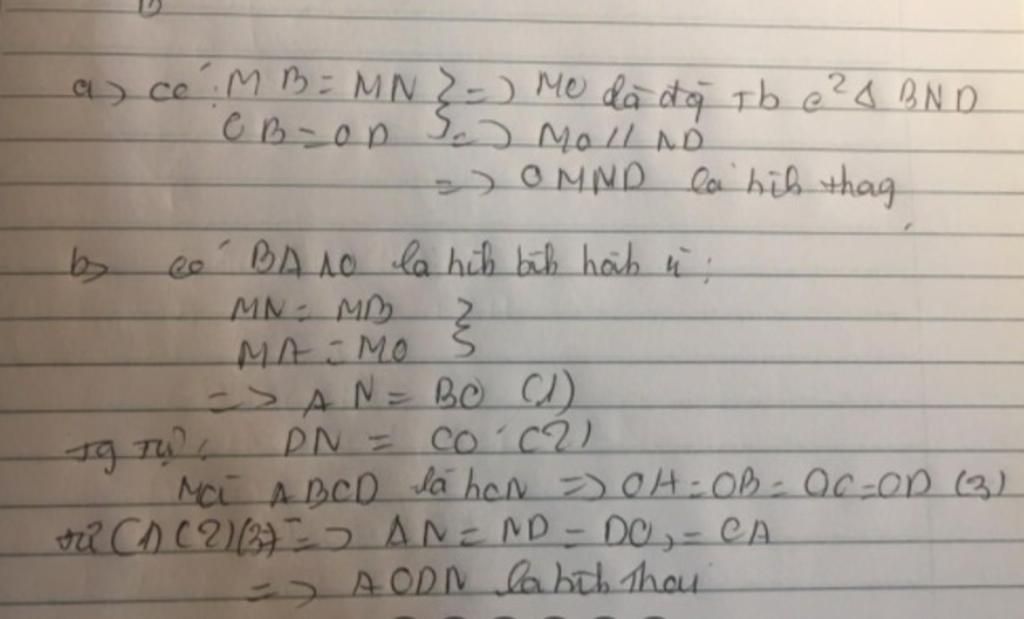 a) có : MB = MN } => MO là đg Tb c² Δ BND
OB = OD } => MO // ND
=> OMND là hih thag
b) có BANO là hih bih hàh vì :
MN = MB }
MA = MO }
=> AN = BO (1)
Tg Tự : DN = CO (2)
Mà ABCD là hcN => OA = OB = OC = OD (3)
từ (1) (2) (3) => AN = ND = DO = OA
=> AODN là hih Thoi